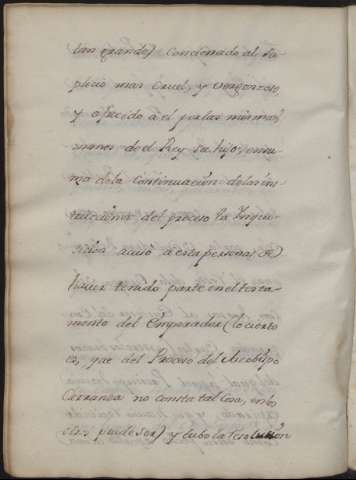 tan grande) condenado al su-
plicio mas cruel, y vergonzoso,
y ofrecido a el por las mismas
manos de el Rey su hijo; en su-
ma de la continuacion de las ins-
trucciones del proceso la Inqui-
sicion acusó a esta persona, de
haver tenido parte en el testa-
mento del Emperador (lo cierto
es, que del Proceso del Arzobispo
Carranza no consta tal cosa, en lo
pudo ser) y hubo la resolucion